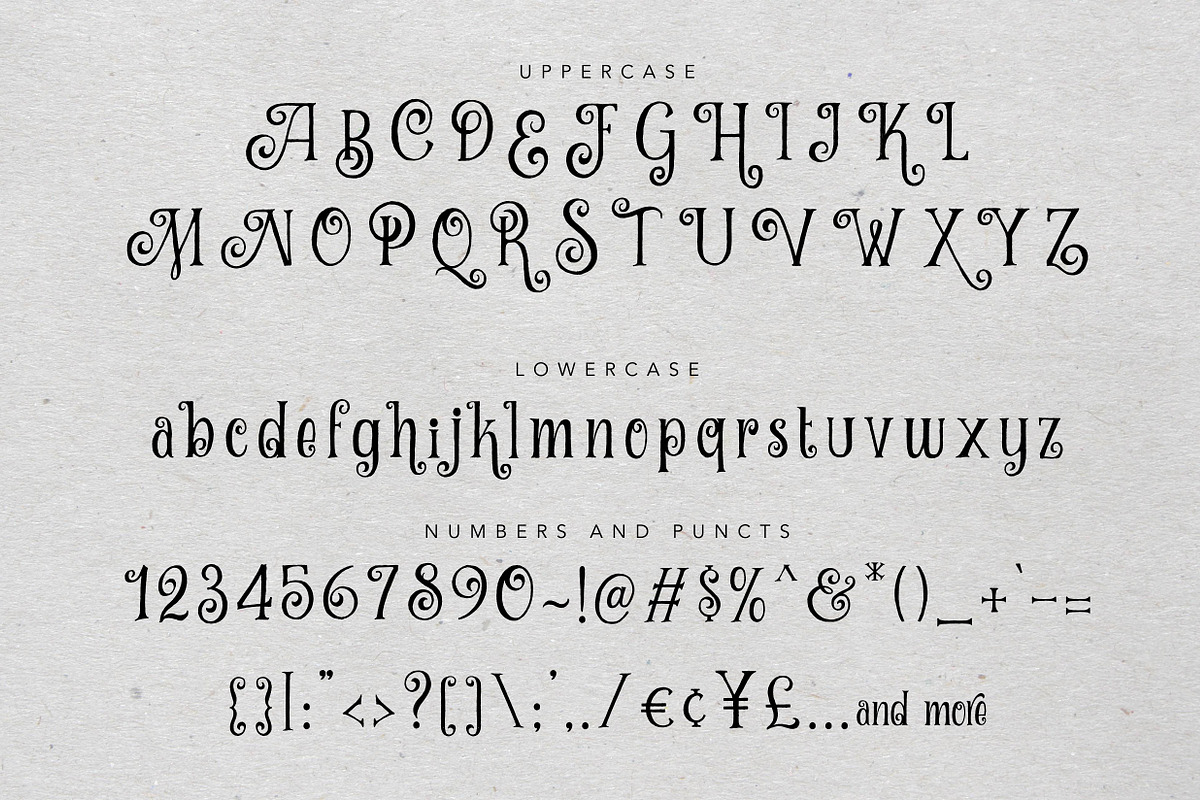 UPPERCASE
ABCDEFGHIJKL
MNOPQRSTUVWXYZ
LOWERCASE
abcdefghijklmnopqrstuvwxyz
NUMBERS AND PUNCTS
1234567890~!@#$%^&*()_+`-=
{}|:"<>?[]\;',./€¢¥£...and more